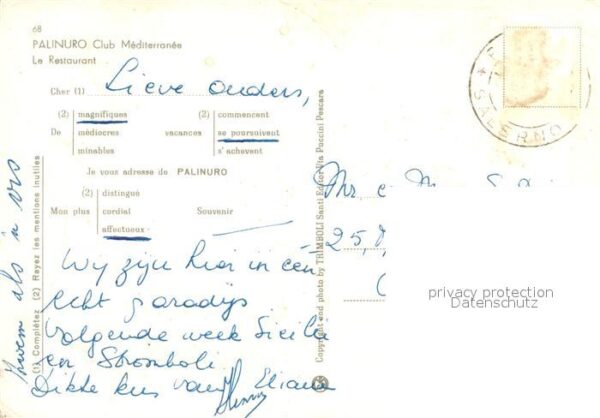 68
PALINURO Club Méditerranée
Le Restaurant
Cher (1) Lieve ouders,
(2) magnifiques (2) commencent
De médiocres vacances se poursuivent
minables s'achevent
Je vous adresse de PALINURO
(2) distingué
Mon plus cordial Souvenir
affectueux
Wy zijn hier in een
echt paradijs
Volgende week Sicilië
en Stromboli
Dikke kus van Eliane
als vis
(1) Complétez (2) Rayez les mentions inutiles
Copyright and photo by TRIMBOLI Santi Editor Via Puccini Pescara
SALERNO
Mr e M
25,
privacy protection
Datenschutz